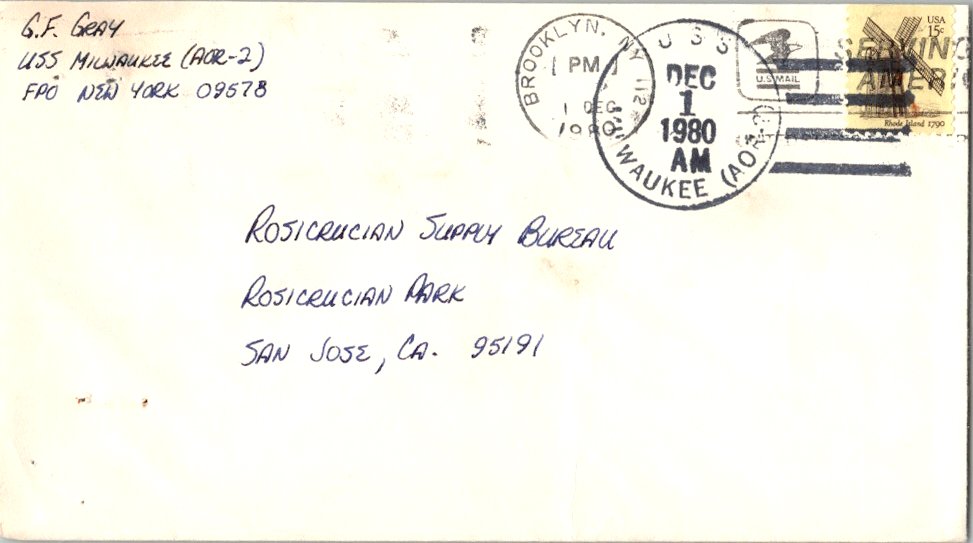 G.F. GRAY
USS MILWAUKEE (AOR-2)
FPO NEW YORK 09578
BROOKLYN, NY 112
PM
1 DEC
1980
USS MILWAUKEE (AOR-2)
DEC
1
1980
AM
U.S.MAIL
SERVING
AMERI
USA
15c
Rhode Island 1790
ROSICRUCIAN SUPPLY BUREAU
ROSICRUCIAN PARK
SAN JOSE, CA. 95191